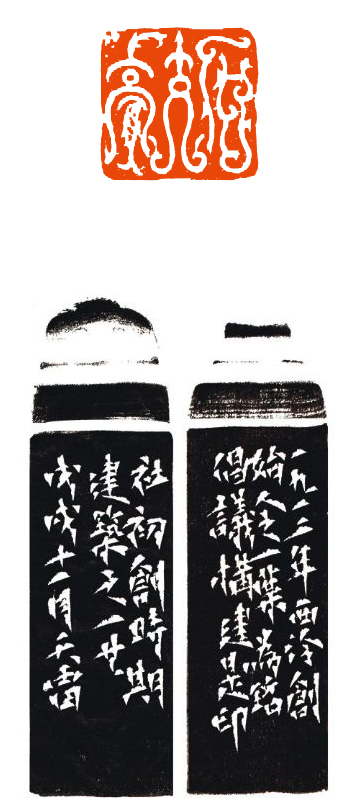 一九一二年西泠創
始人之一葉為銘
倡議構建是印
社初創時期
建築之一也
戊戌十一月千雷